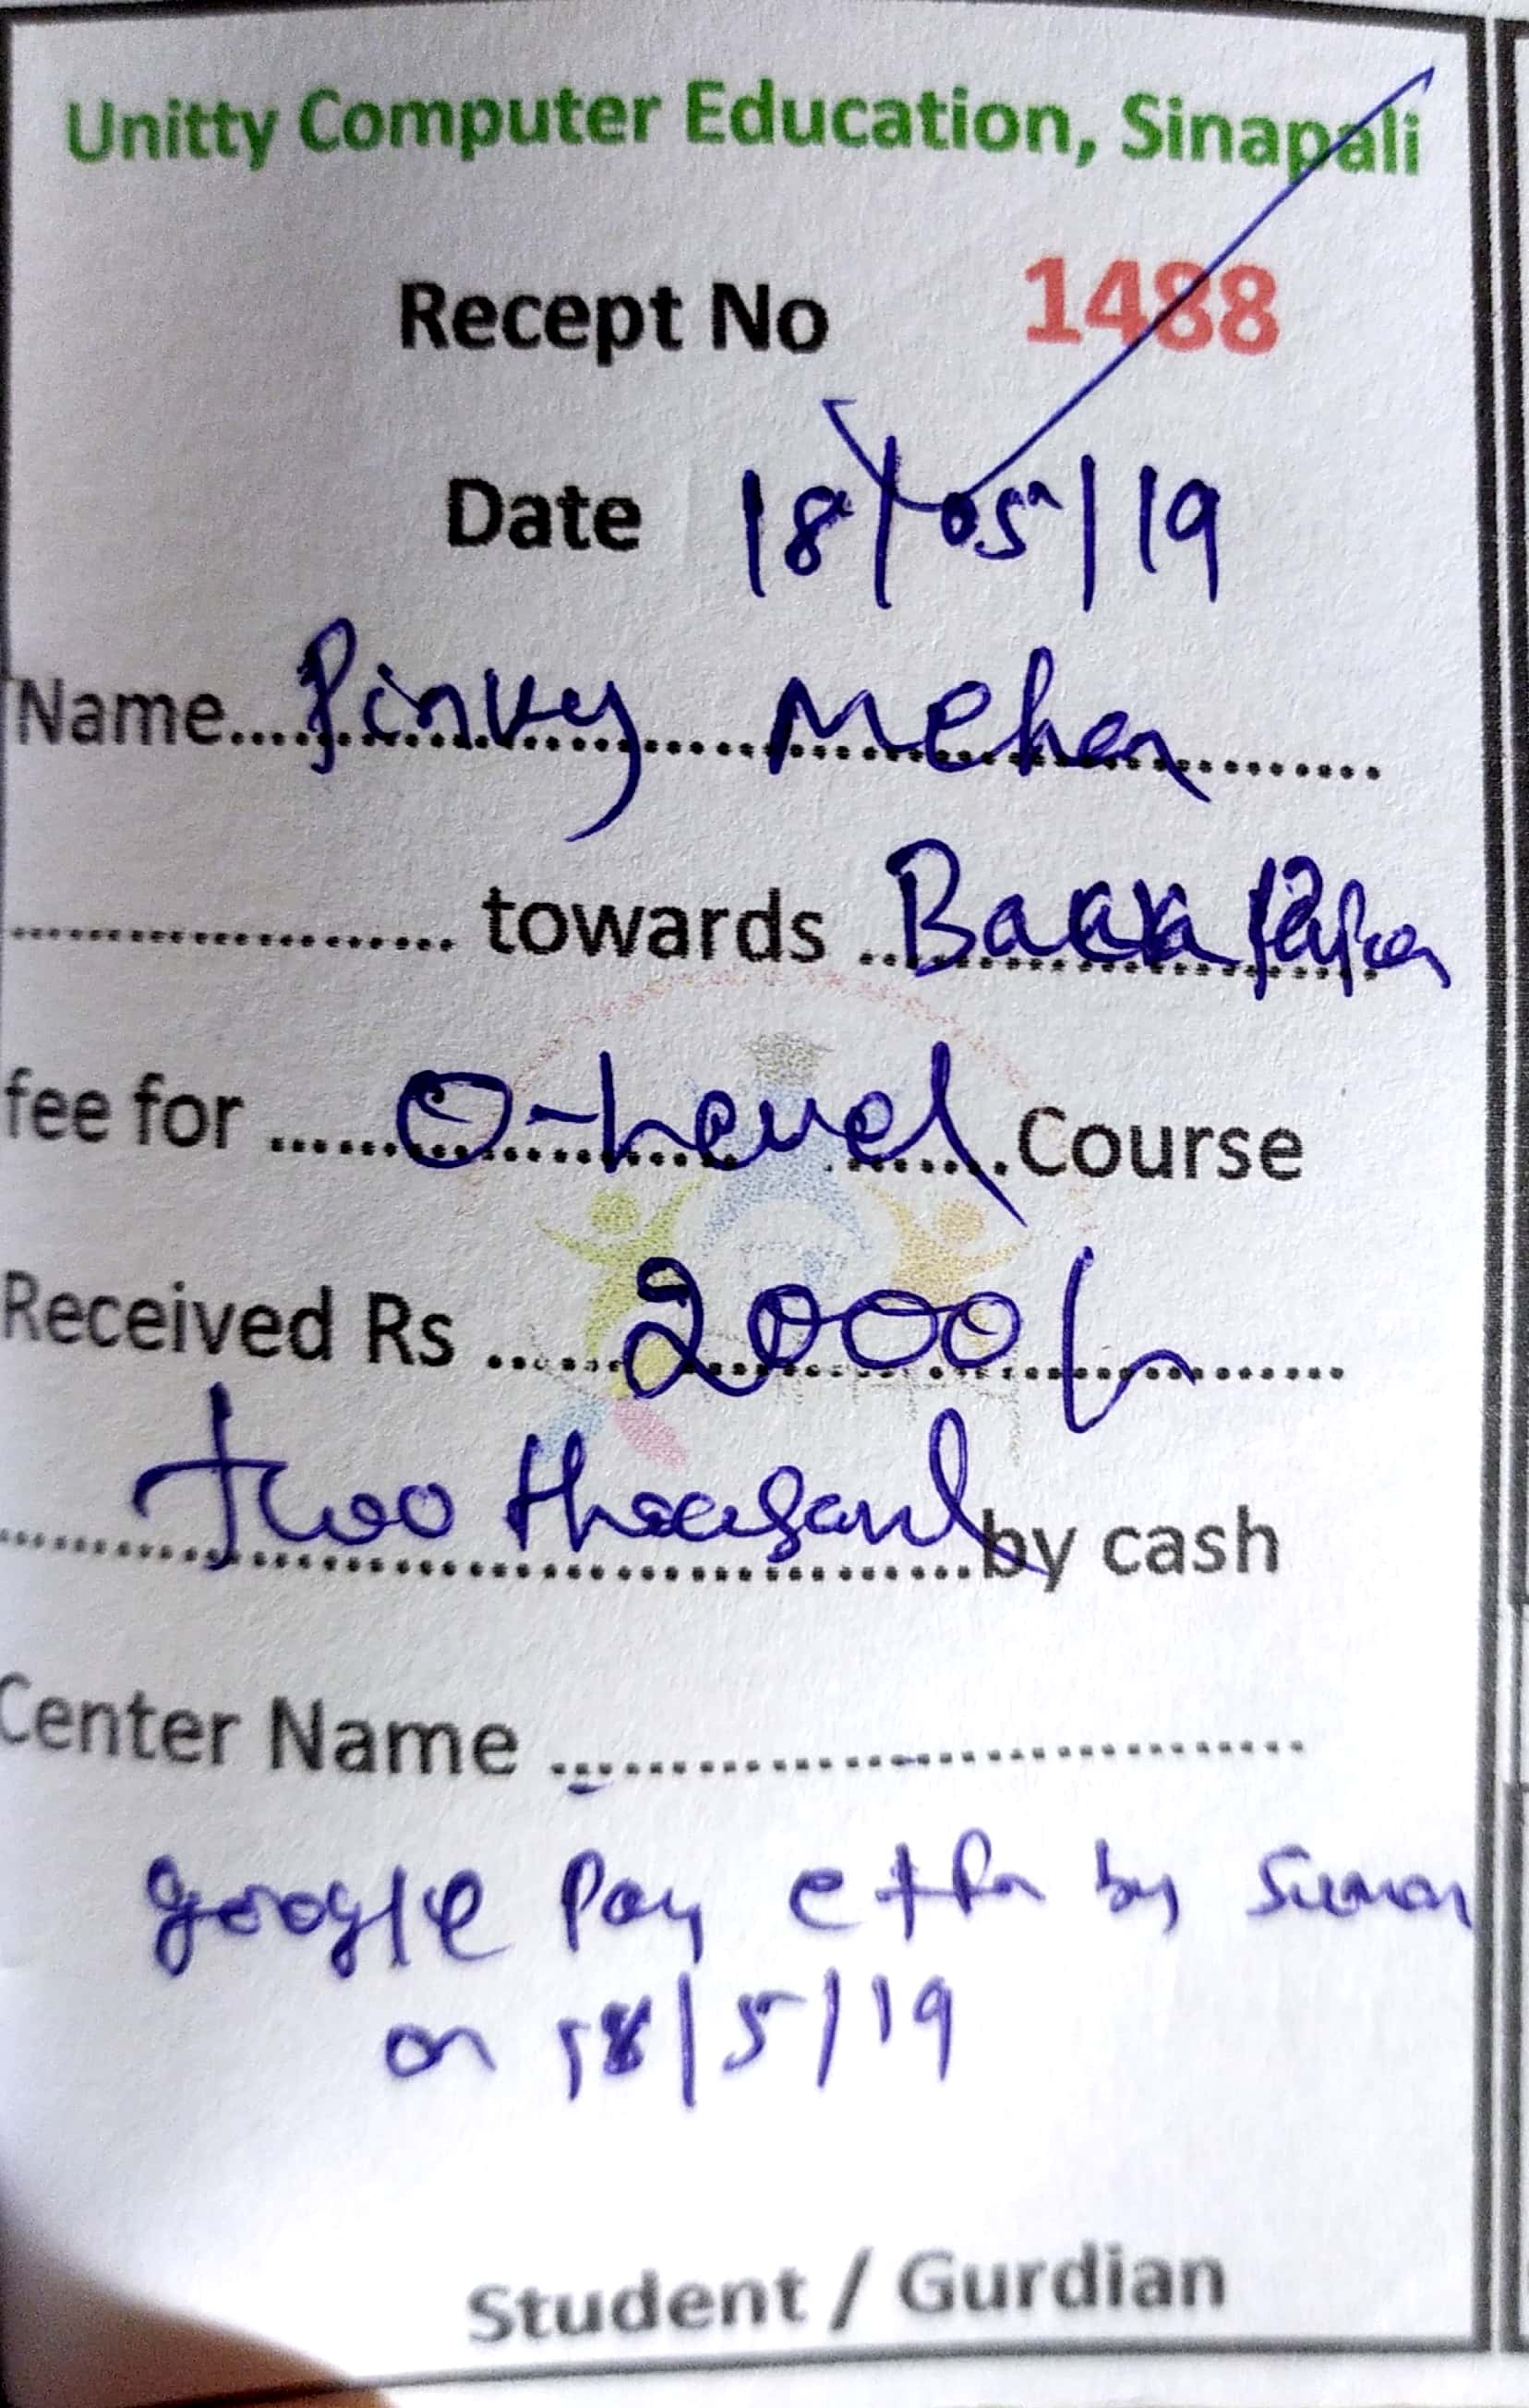 Unitty Computer Education, Sinapali
Recept No 1488
Date 18/05/19
Name.... Pinky Meher
.................... towards .. Back Paper
fee for ...... O-Level .......Course
Received Rs ...... 2000/-
two thousand by cash
Center Name ................................
google Pay by Suman
on 18/5/19
Student / Gurdian